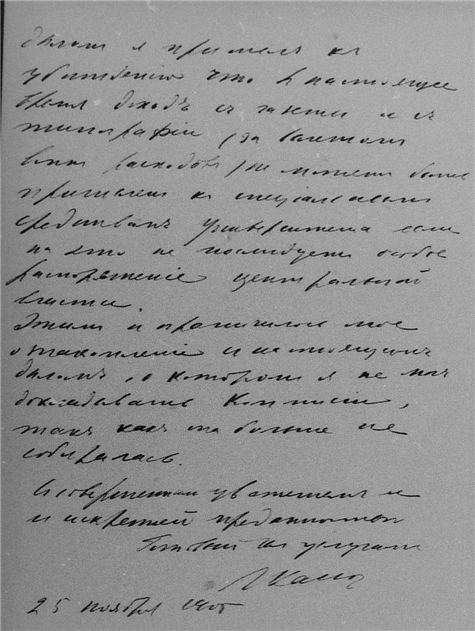 дѣломъ я пришелъ къ
убѣжденію что въ настоящее
время доходъ съ газеты и съ
типографіи (за вычетомъ
всѣхъ расходовъ) не можетъ быть
причисленъ къ спеціальнымъ
средствамъ Университета если
на это не послѣдуетъ особое
распоряженіе центральной
власти.
Этимъ и ограничилось мое
ознакомленіе съ настоящимъ
дѣломъ, о которомъ я не могъ
докладывать Коммисіи,
такъ какъ она больше не
собиралась.
Съ совершеннымъ уваженіемъ и
и искренней преданностью
Готовый къ услугамъ
Л Кассо
25 ноября 1905